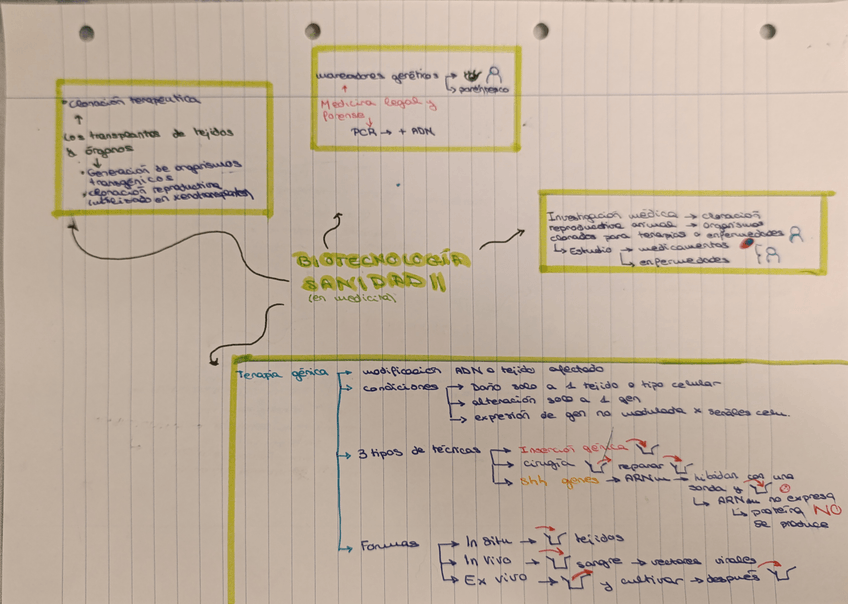 • Clonación terapéutica
Los transplantes de tejidos
& órganos
• Generación de organismos
transgénicos
• clonación reproductiva
(utilizado en xenotransplantes)
marcadores genéticos
parentesco
Medicina legal y
forense
PCR → + ADN
Investigación médica → clonación
reproductiva animal → organismos
clonados para terapias o enfermedades
↳ Estudio → medicamentos
↳ enfermedades
BIOTECNOLOGÍA
SANIDAD II
(en medicina)
Terapia génica
→ modificación ADN o tejido afectado
→ condiciones
→ Daño solo a 1 tejido o tipo celular
→ alteración solo a 1 gen
→ expresión de gen no modulada x señales celu.
→ 3 tipos de técnicas
→ Inserción génica
→ cirugía reparar
→ Shh genes → ARNm → hibidar con una
sonda y
↳ ARNm no expresa
↳ proteína NO
se produce
→ Formas
→ In situ → tejidos
→ In vivo → sangre → vectores virales
→ Ex vivo → y cultivar → después